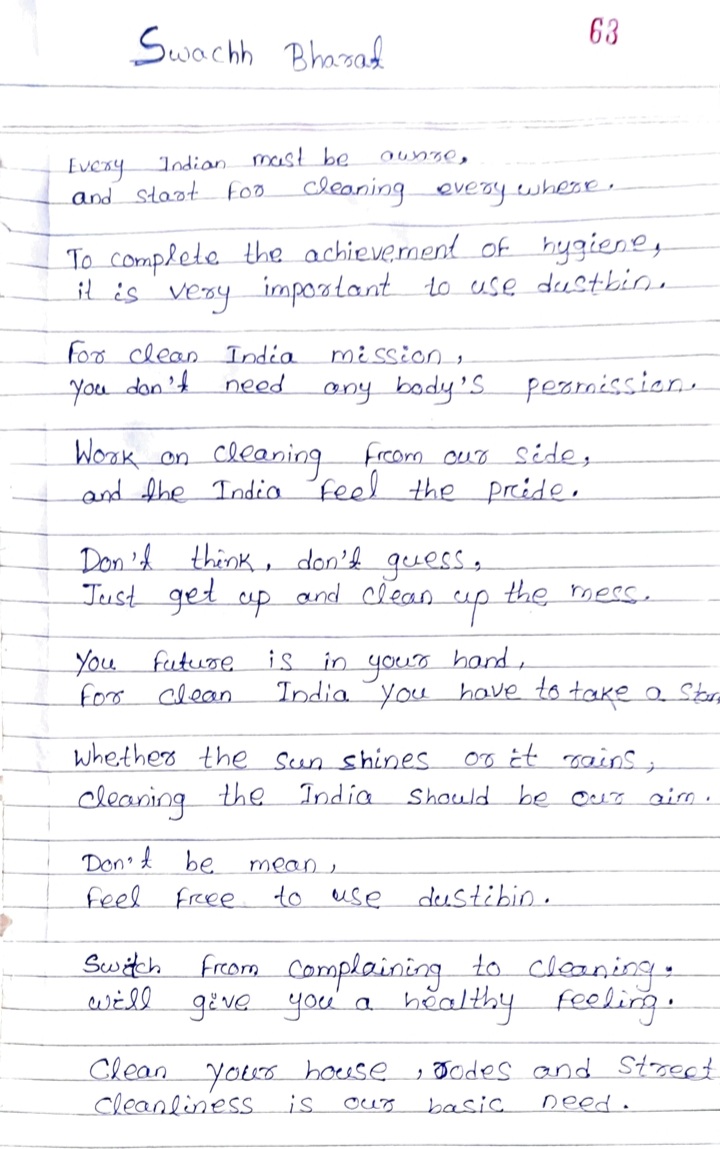 63
Swachh Bharat
Every Indian must be aware,
and start for cleaning every where.
To complete the achievement of hygiene,
it is very important to use dustbin.
For clean India mission,
you don't need any body's permission.
Work on cleaning from our side,
and the India feel the pride.
Don't think, don't guess,
Just get up and clean up the mess.
You future is in your hand,
for clean India you have to take a
Whether the sun shines or it rains,
cleaning the India should be our aim.
Don't be mean,
feel free to use dustibin.
Switch from complaining to cleaning.
will give you a healthy feeling.
Clean your house, rodes and street
Cleanliness is our basic need.